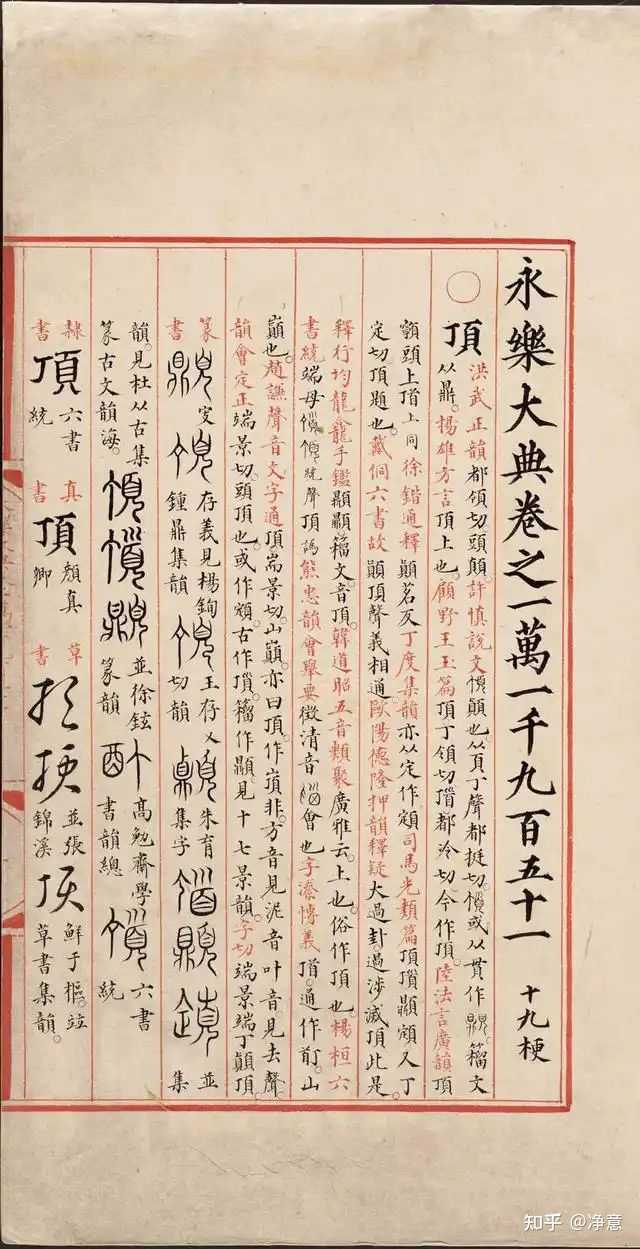 永樂大典卷之一萬一千九百五十一 十九梗
頂 洪武正韻都領切頭顛許慎說文顛也从頁丁聲都挺切或从貫作籀文
从鼎楊雄方言頂上也顧野王玉篇頂丁領切都冷切今作頂陸法言廣韻頂
頭上上同徐鍇通釋顛茗反丁度集韻亦从定作顁司馬光類篇頂顁又丁
定切頂題也戴侗六書故顛頂聲義相通歐陽德隆押韻釋疑大過卦過涉滅頂此是
釋行均龍龕手鑑籀文音頂韓道昭五音類聚廣雅云上也俗作頂也楊桓六
書統端母統聲頂譌熊忠韻會舉要徵清音會也字潫博義通作山
巔也趙謙聲音文字通頂耑景切山巔亦曰頂作嵿非方音見泥音叶音見去聲
韻會定正端景切頭頂也或作顁古作籀作見十七景韻字切端景端丁顛頂
篆書 存義見楊鉤鍾鼎集韻 王存乂切韻 朱育集字 並集
韻見杜从古集篆古文韻海 並徐鉉篆韻 高勉齋學書韻總 六書統
隸書 頂 六書統 真書 頂 顏真卿 草書 並張錦溪 鮮于樞並草書集韻
知乎 @净意